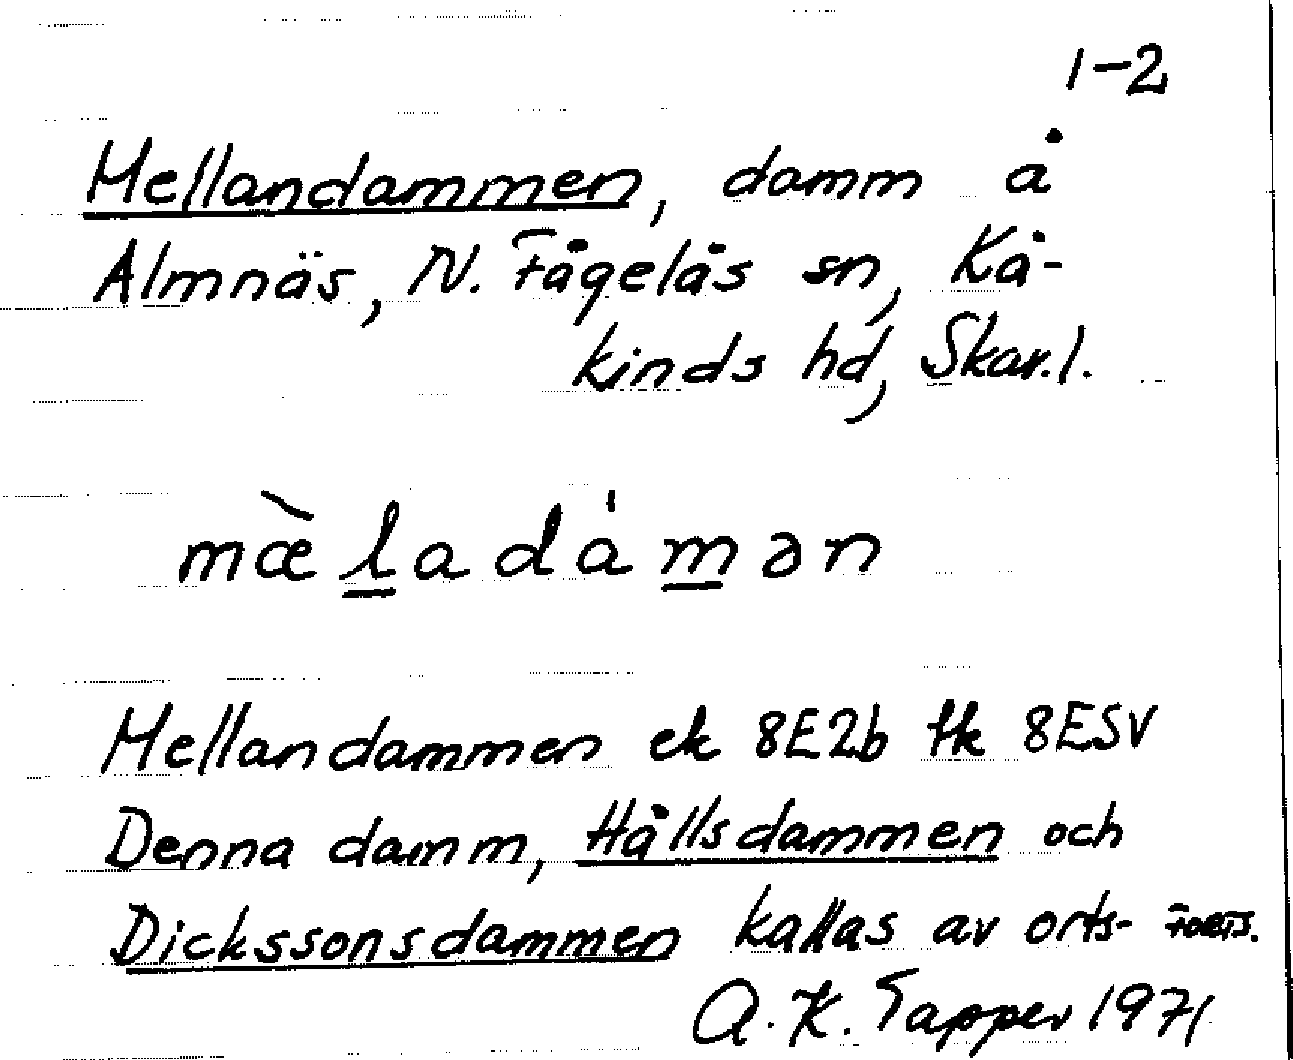 1-2
Mellandammen, damm å
Almnäs, N. Fågelås sn, Kå-
kinds hd, Skar.l.
mæ̀l̲adám̲ən
Mellandammen ek 8E2b tk 8ESV
Denna damm, Hållsdammen och
Dickssonsdammen kallas av orts- forts.
A. K. Tapper 1971